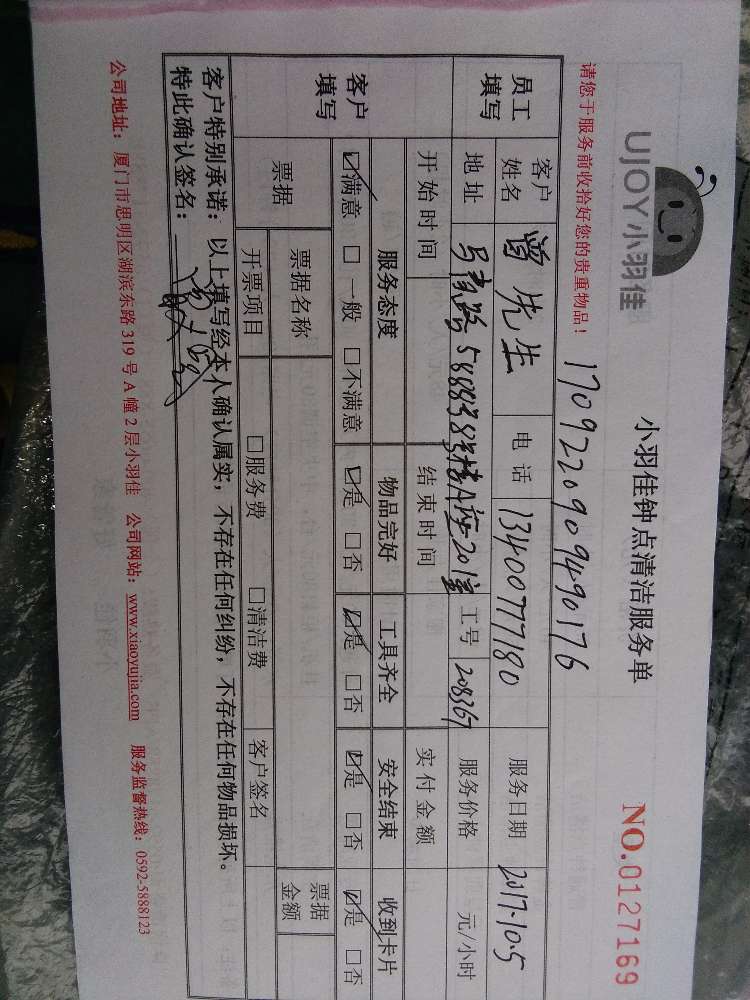 UJOY小羽佳
小羽佳钟点清洁服务单
NO.0127169
请您于服务前收拾好您的贵重物品！
1709220909490176
员工填写
客户姓名 曾先生 电话 13400777180 服务日期 2017.10.5
地址 58号 A座201室 工号 208367 服务价格 元/小时
开始时间 结束时间 实付金额
客户填写
服务态度 物品完好 工具齐全 安全结束 收到卡片
☑满意 □一般 □不满意 ☑是 □否 ☑是 □否 ☑是 □否 ☑是 □否
票据 票据名称 票据金额
开票项目 □服务费 □清洁费 客户签名
客户特别承诺：以上填写经本人确认属实，不存在任何纠纷，不存在任何物品损坏。
特此确认签名：
公司地址：厦门市思明区湖滨东路 319 号 A 幢 2 层小羽佳 公司网站：www.xiaoyujia.com 服务监督热线：0592-5888123